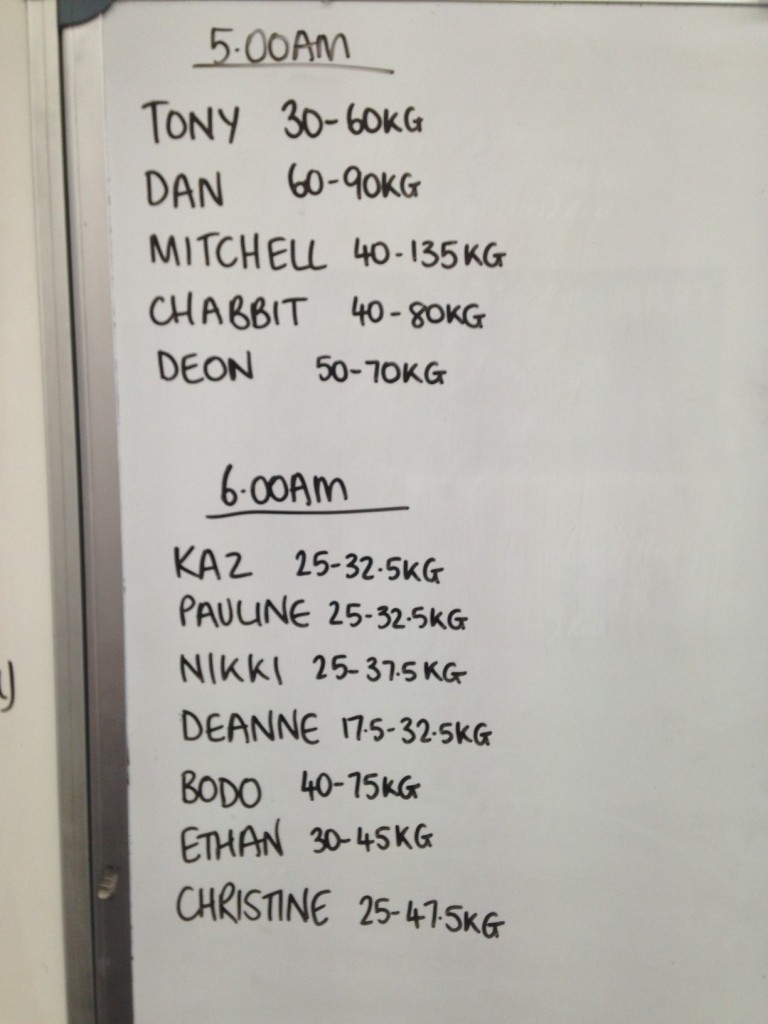 5.00AM
TONY 30-60KG
DAN 60-90KG
MITCHELL 40-135KG
CHABBIT 40-80KG
DEON 50-70KG
6.00AM
KAZ 25-32.5KG
PAULINE 25-32.5KG
NIKKI 25-37.5KG
DEANNE 17.5-32.5KG
BODO 40-75KG
ETHAN 30-45KG
CHRISTINE 25-47.5KG